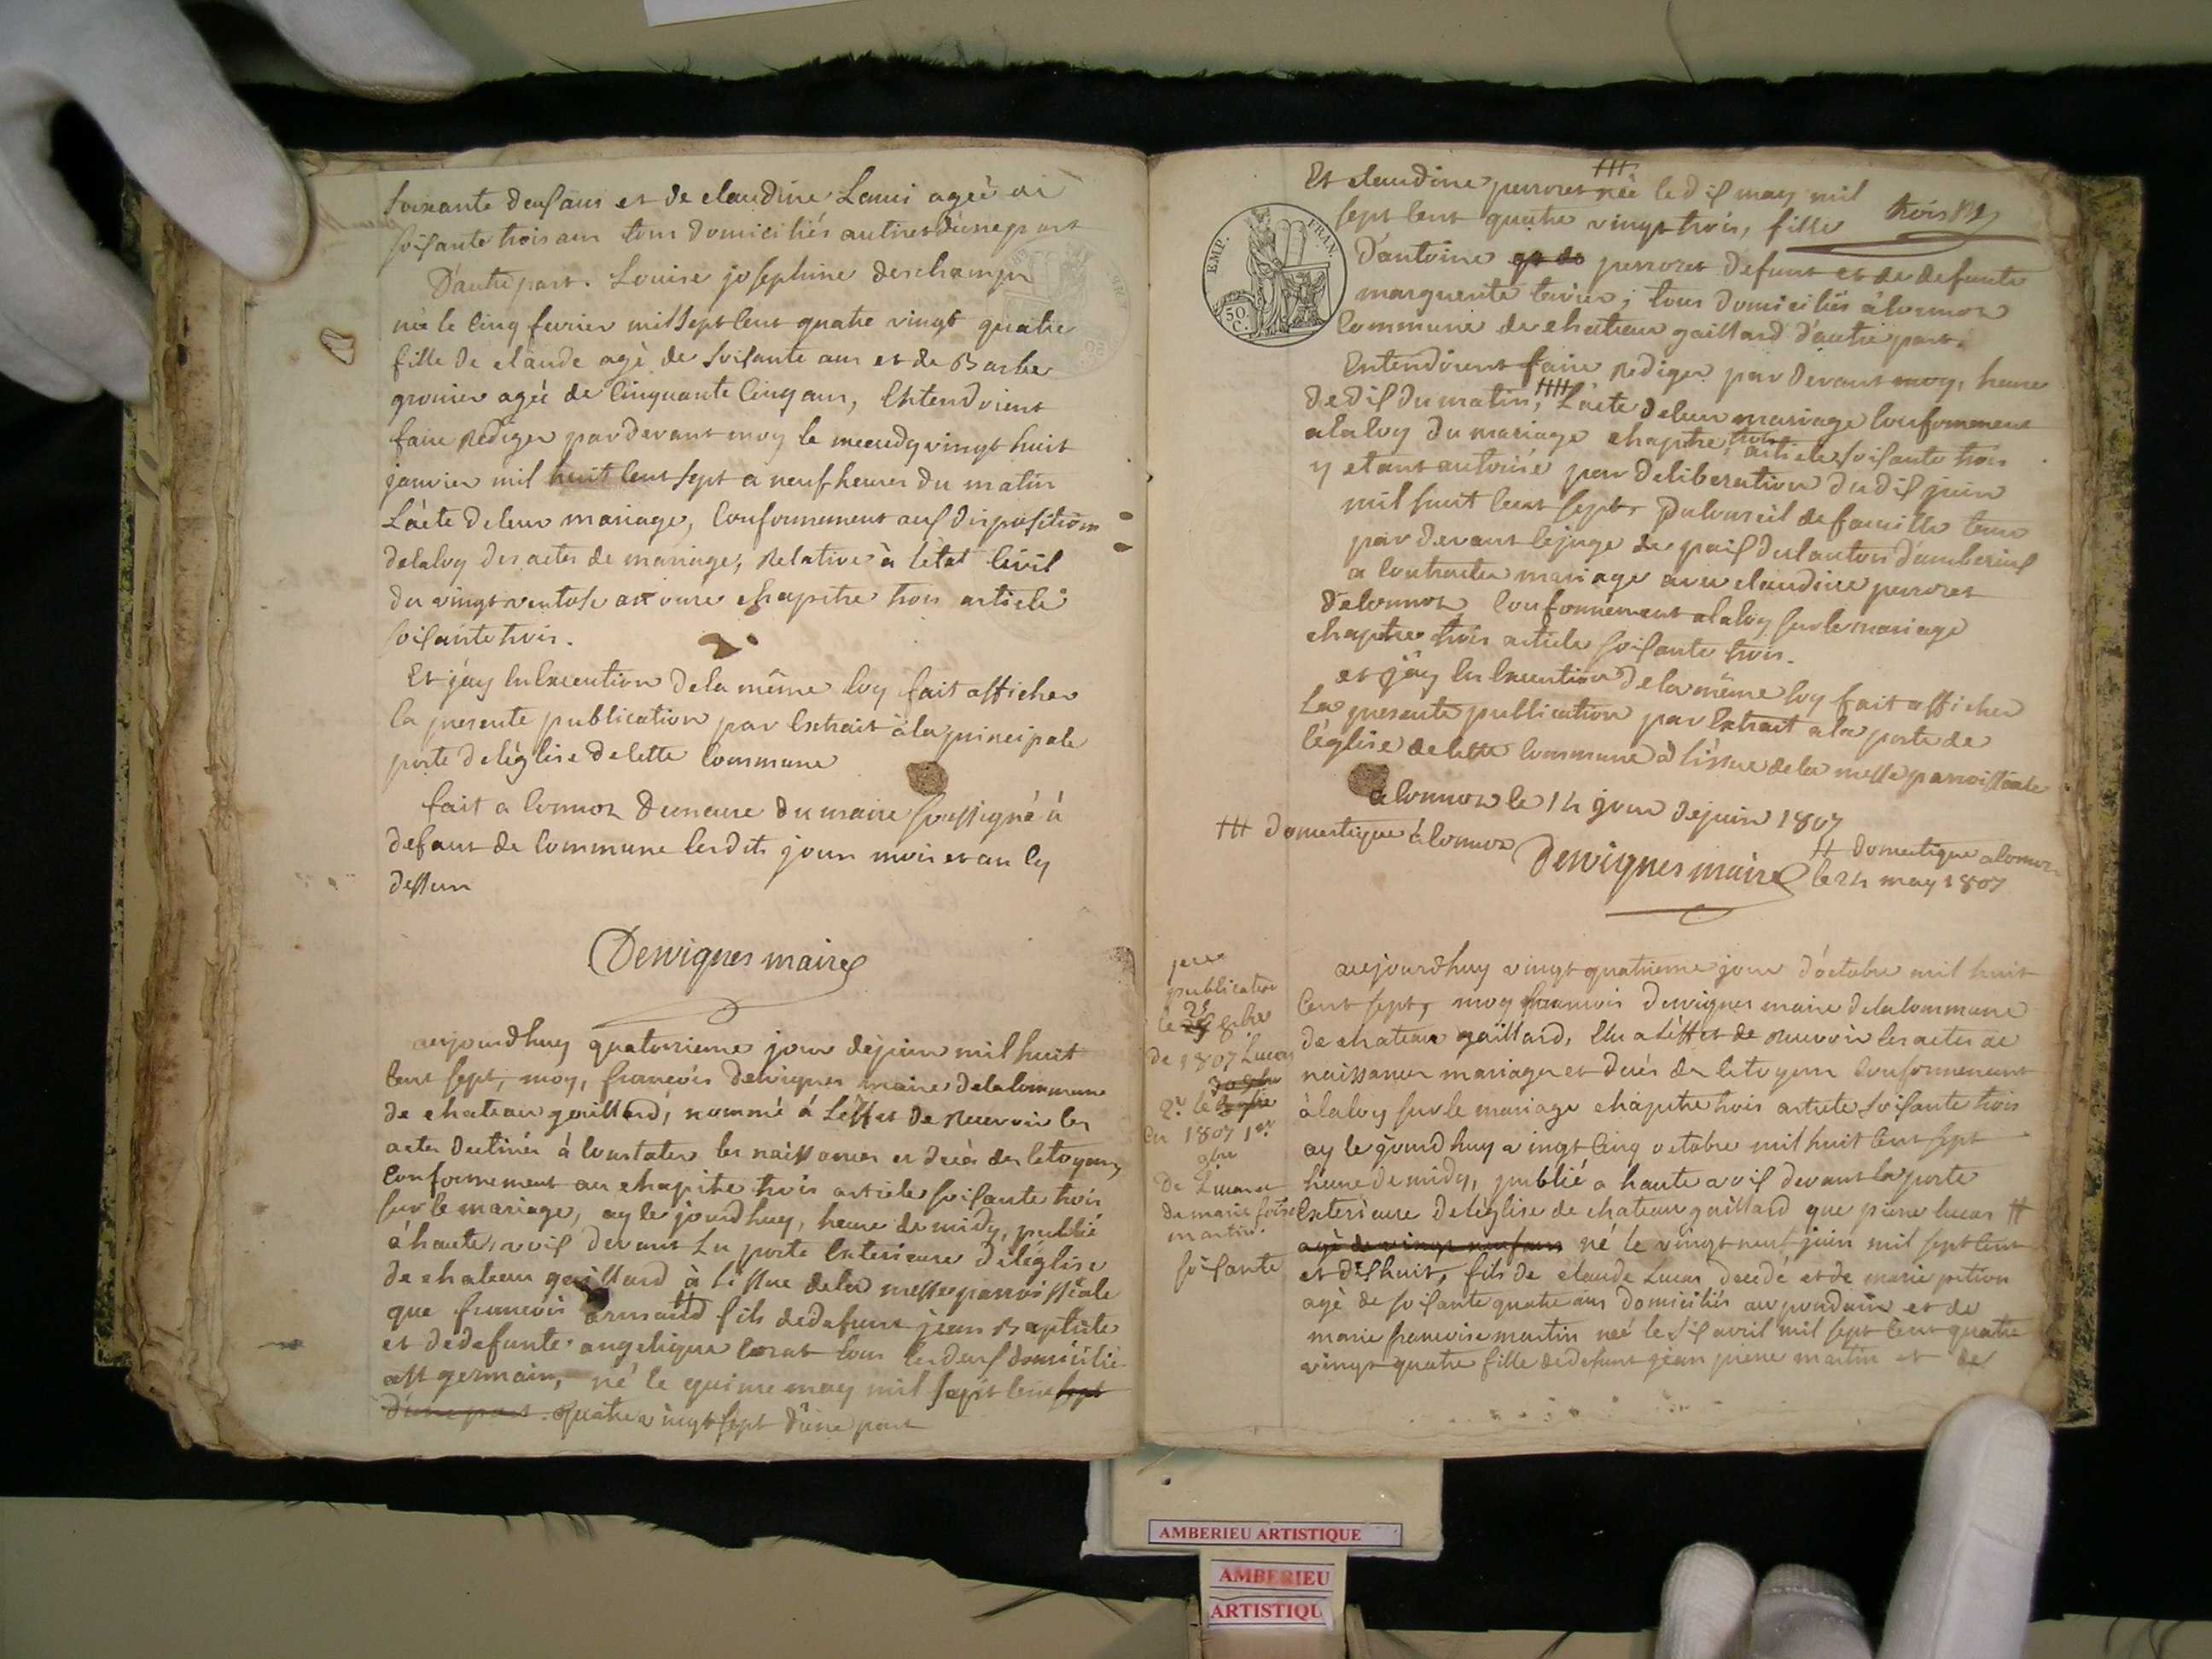 soixante deux ans et de claudine Lami agée de
soisante trois ans tous domiciliés autires d'une part
D'autre part. Louise josephine deschamps
née le Cinq fevrier mil sept Cent quatre vingt quatre
fille de claude agé de soisante ans et de Barbe
grosnier agée de Cinquante Cinq ans, Entendoient
faire Rediger par devant moy le mecredy vingt huit
janvier mil huit Cent sept a neuf heures du matin
L'acte de leur mariage, Conformement aux dispositions
de la loy des actes de mariage, Relative à l'état Civil
du vingt ventose an onze chapitre trois article
soisante trois.
Et j'ay En Execution de la même loy fait afficher
la presente publication par Extrait à la principale
porte de l'église de Cette Commune
fait a Connoz Demeure du maire soussigné à
defaut de Commune lesdits jour mois et an Cy
dessus
Dervignes maire
aujourdhuy quatorsieme jour de juin mil huit
Cent sept, moy, francois Dervignes maire de la Commune
de chateau gaillard, nommé à L'effet de Recevoir les
actes destinés à Constater les naissances et decès des Citoyens,
Conformement au chapitre trois article soisante trois
sur le mariage, ay le jourdhuy, heure de midy, publié
à haute voix devant La porte Exterieure de l'église
de chateau gaillard à L'issue de la messe parroissiale
que francois armand # fils de defunt jean Baptiste
et de defunte angelique Corat tous les deux domicilié
a st germain, né le quinze may mil sept Cent sept
d'une part. quatre vingt sept d'une part
Et claudine perroret ### née le dix may mil
sept Cent quatre vingt trois, fille
trois
EMP. FRAN.
50. C.
D'antoine perroret defunt et de defunte
marguerite tenier; tous domiciliés à Connoz
Commune de chateau gaillard d'autre part.
Entendoient faire Rediger par devant moy, heure
de dix du matin, L'acte de leur mariage Conformement
a la loy du mariage chapitre trois article soisante trois
y etant autorisé par deliberation du dix juin
mil huit Cent sept, du Conseil de famille tenu
par devant le juge de paix du Canton d'amberieux
a Contracter mariage avec claudine perroret
de Connoz Conformement a la loy sur le mariage
chapitre trois article soisante trois.
et j'ay En Execution de la même loy fait afficher
La presente publication par Extrait a la porte de
l'église de Cette Commune à l'issue de la messe parroissiale
a Connoz le 14 jour de juin 1807
### domestique à Connoz
Dervignes maire
# domestique a Connoz
le 24 may 1807
1ere
publication
le 25 8bre
de 1807 Lucas
30 8bre
2e le
En 1807 1er
9bre
De Lucas et
de marie foise
martin.
soisante
aujourdhuy vingt quatrieme jour d'octobre mil huit
Cent sept, moy francois dervignes maire de la Commune
de chateau gaillard, Elu a L'effet de Recevoir les actes de
naissances mariages et decès des Citoyens Conformement
à la loy sur le mariage chapitre trois article soisante trois
ay le jourdhuy vingt Cinq octobre mil huit Cent sept
heure de midy, publié a haute voix devant la porte
Exterieure de l'église de chateau gaillard que pierre lucas #
agé de vingt neuf ans né le vingt neuf juin mil sept Cent
et dix huit, fils de claude Lucas decedé et de marie pition
agé de soisante quatre ans domiciliés au pondain et de
marie francoise martin née le dix avril mil sept Cent quatre
vingt quatre fille de defunt jean pierre martin et de
AMBERIEU ARTISTIQUE
AMBERIEU
ARTISTIQU